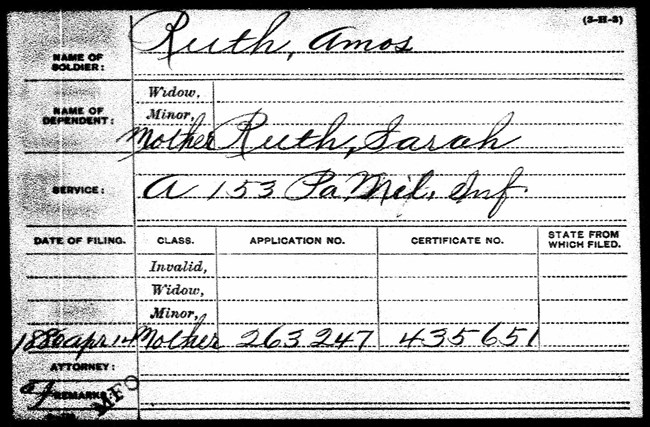 (3-H-3)
NAME OF SOLDIER: Ruth, Amos
NAME OF DEPENDENT: Widow,
Minor,
Mother Ruth, Sarah
SERVICE: A 153 Pa Mil. Inf.
DATE OF FILING. CLASS. APPLICATION NO. CERTIFICATE NO. STATE FROM WHICH FILED.
Invalid,
Widow,
Minor,
1880 apr 14 Mother 263 247 435651
ATTORNEY:
REMARKS: M.F.O